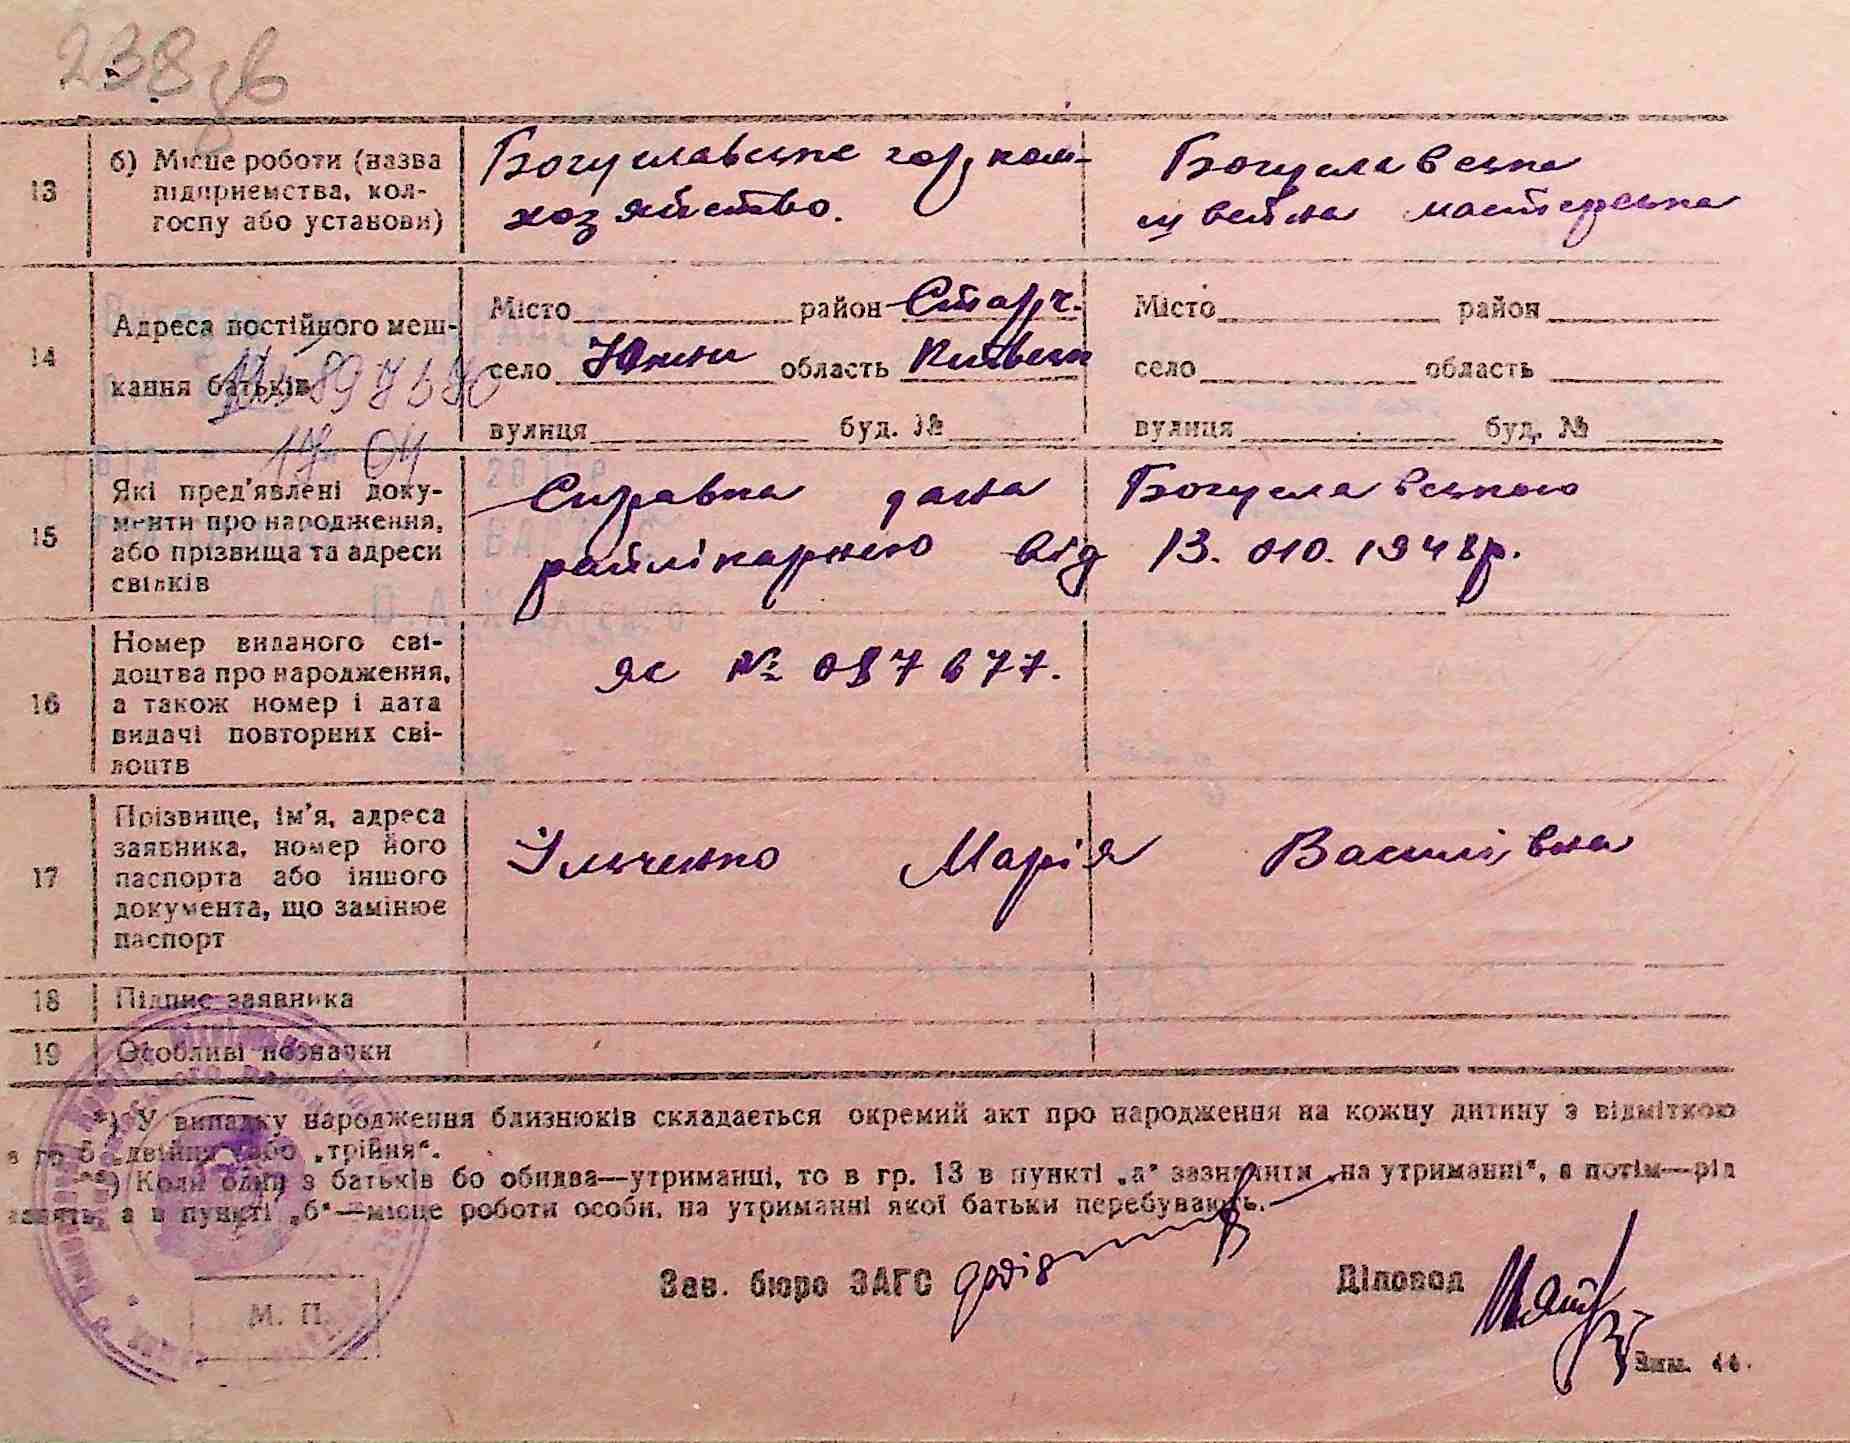 238зв
13
б) Місце роботи (назва
підприємства, кол-
госпу або установи)
Богуславське горком-
хозяйство.
Богуславська
швейна майстерська
14
Адреса постійного меш-
кання батьків
Місто район Старч.
село Юхни область Київськ
вулиця буд. №
Місто район
село область
вулиця буд. №
897390
17 04
15
Які пред'явлені доку-
менти про народження,
або прізвища та адреси
свідків
Справка дана Богуславською
райлікарнею від 13. 010. 1948р.
16
Номер виданого сві-
доцтва про народження,
а також номер і дата
видачі повторних сві-
доцтв
яс № 087677.
17
Прізвище, ім'я, адреса
заявника, номер його
паспорта або іншого
документа, що замінює
паспорт
Ільченко Марія Василівна
18
Підпис заявника
19
Особливі позначки
*) У випадку народження близнюків складається окремий акт про народження на кожну дитину з відміткою
в гр. 5 „двійня" або „трійня".
**) Коли один з батьків бо обидва—утриманці, то в гр. 13 в пункті „а" зазначити „на утриманні", а потім—рід
занять, а в пункті „б"—місце роботи особи, на утриманні якої батьки перебувають.
Зав. бюро ЗАГС
Діловод
М. П.
Зам. 44.